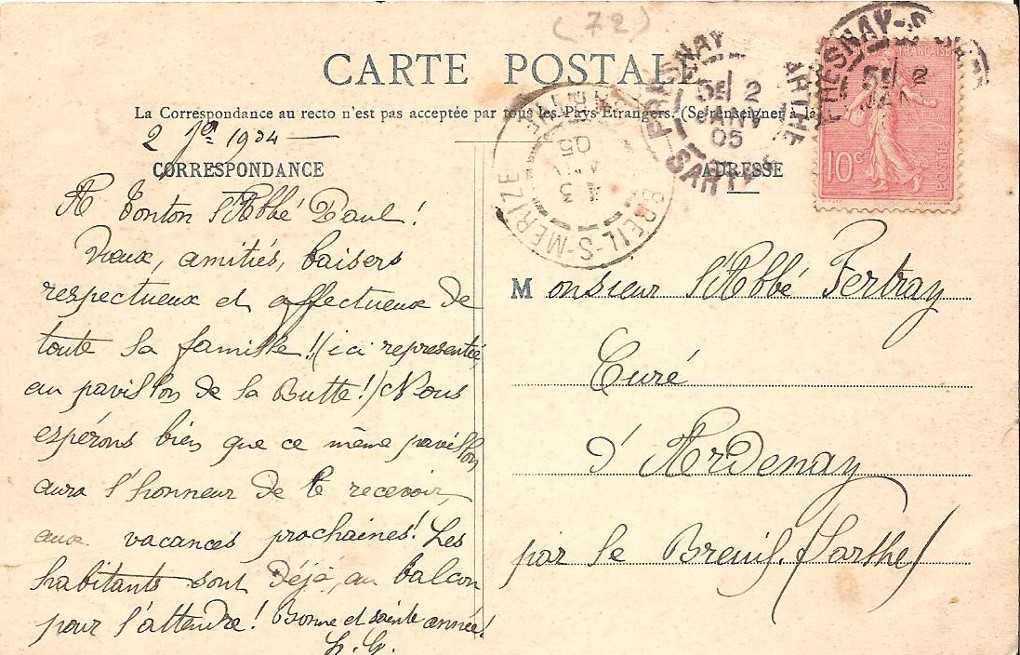 (72)
CARTE POSTALE
La Correspondance au recto n'est pas acceptée par tous les Pays Étrangers. (Se renseigner à la
2 Jer 1904
CORRESPONDANCE
A Tonton l'Abbé Paul!
Vœux, amitiés, baisers
respectueux et affectueux de
toute la famille! (ici representée
au pavillon de la Butte!) Nous
espérons bien que ce même pavillon
aura l'honneur de te recevoir,
aux vacances prochaines! Les
habitants sont déjà au balcon
pour l'attendre! Bonne et sainte année!
L. G.
ADRESSE
Monsieur l'Abbé Fertray
Curé
d'Ardenay
par le Breuil. (Sarthe)
BREIL-S-MERIZE
SARTHE
3
JANV
05
FRESNAY
5E 2
JANV
05
SARTHE
FRESNAY-S-S
5E 2
FRANÇAISE
10c
POSTES